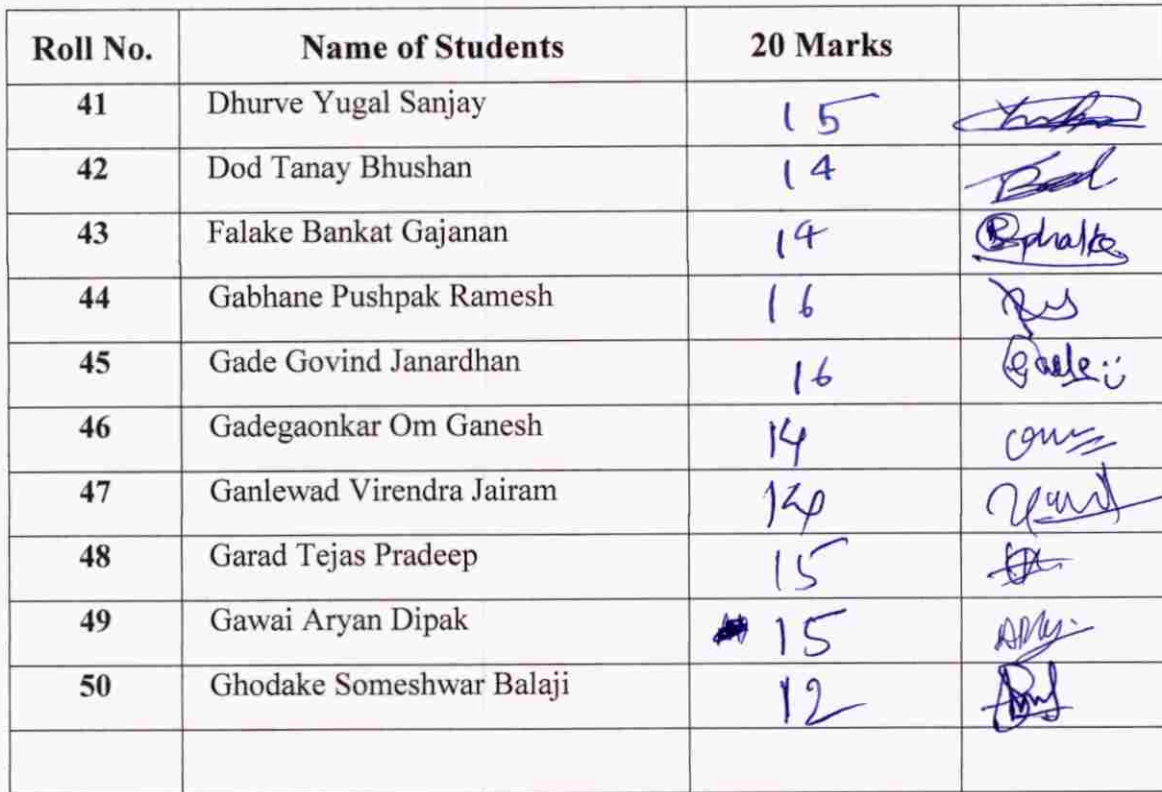 Roll No. Name of Students 20 Marks
41 Dhurve Yugal Sanjay 15
42 Dod Tanay Bhushan 14
43 Falake Bankat Gajanan 14 Bphalke
44 Gabhane Pushpak Ramesh 16
45 Gade Govind Janardhan 16 Gade
46 Gadegaonkar Om Ganesh 14
47 Ganlewad Virendra Jairam 14
48 Garad Tejas Pradeep 15
49 Gawai Aryan Dipak 15
50 Ghodake Someshwar Balaji 12